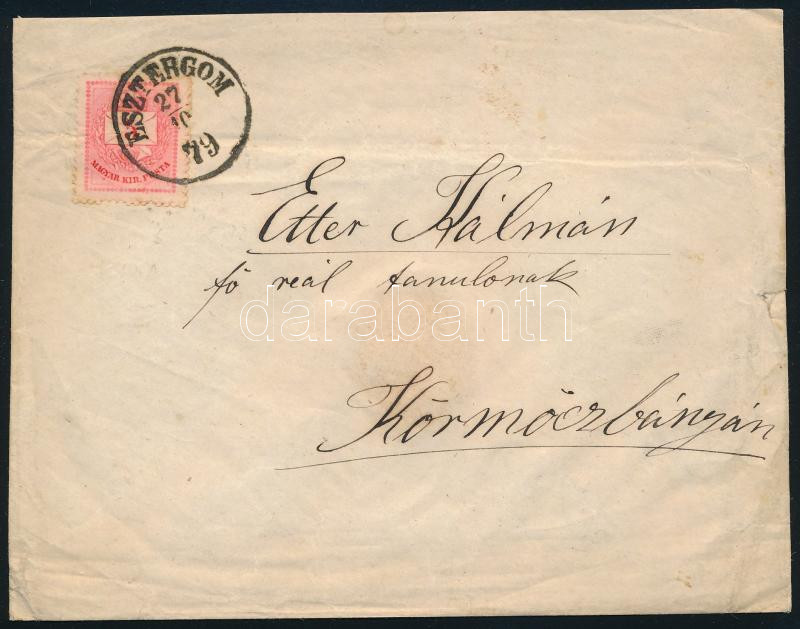 ESZTERGOM
27
10
79
MAGYAR. KIR. POSTA
Etter Kálmán
fő reál tanulonak
darabanth
Körmöczbányán